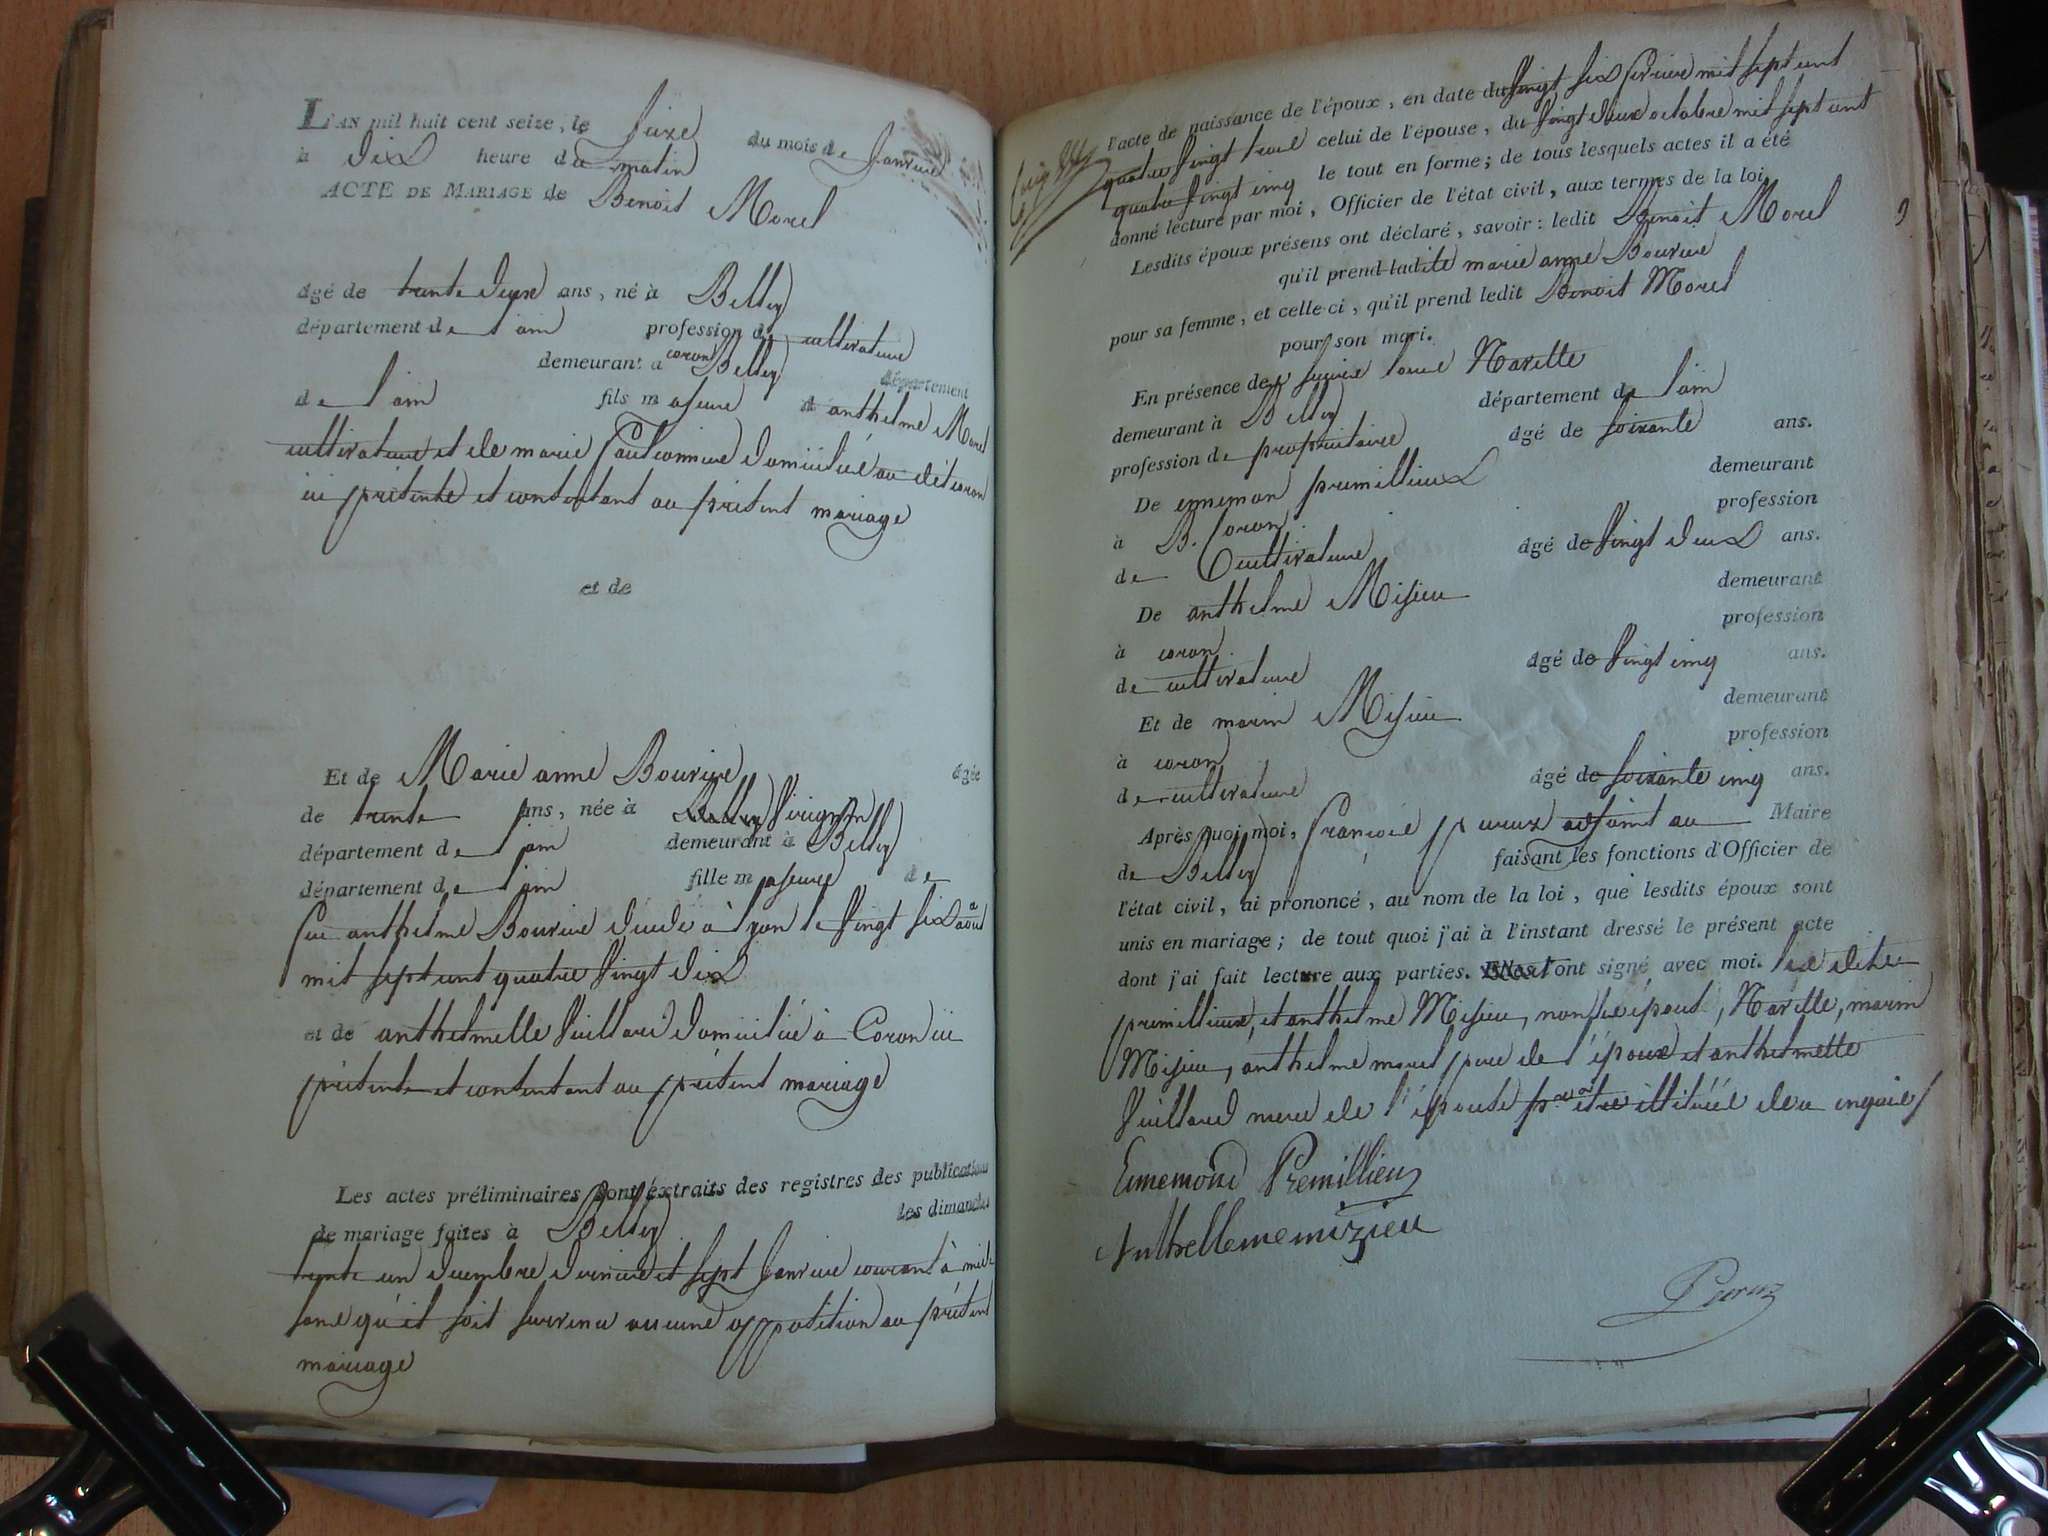 L'AN mil huit cent seize, le Seize du mois de Janvier
à dix heure du matin
ACTE DE MARIAGE de Benoit Morel
âgé de trente deux ans, né à Belley
département de l'ain profession de cultivateur
demeurant à coron Belley département
de l'ain fils majeur d'anthelme Morel
cultivateur et de marie domicilié au dit coron
ici présents et consentant au présent mariage
et de
Et de Marie anne Bouvier âgée
de trente ans, née à Virignin
département de l'ain demeurant à Belley
département de l'ain fille majeure de
feu anthelme Bouvier décédé à lyon le vingt six aout
mil sept cent quatre vingt dix
et de anthelmette Vuillard domiciliée à Coron ici
présente et consentant au présent mariage
Les actes préliminaires sont extraits des registres des publications
de mariage faites à Belley les dimanches
trente un décembre dernier et sept Janvier courant à midi
sans qu'il soit survenu aucune opposition au présent
mariage
l'acte de naissance de l'époux, en date du vingt six février mil sept cent
quatre vingt celui de l'épouse, du vingt deux octobre mil sept cent
quatre vingt cinq le tout en forme; de tous lesquels actes il a été
donné lecture par moi, Officier de l'état civil, aux termes de la loi.
Lesdits époux présens ont déclaré, savoir: ledit Benoit Morel
qu'il prend ladite marie anne Bouvier
pour sa femme, et celle-ci, qu'il prend ledit Benoit Morel
pour son mari.
En présence de Navette
demeurant à Belley département de l'ain
profession de propriétaire âgé de soixante ans.
De ennemon premillieux demeurant
à B. Coron profession
de Cultivateur âgé de vingt deux ans.
De anthelme Misieu demeurant
à coron profession
de cultivateur âgé de vingt cinq ans.
Et de marin Misieu demeurant
à coron profession
de cultivateur âgé de soixante cinq ans.
Après quoi moi, françois peruz adjoint au Maire
de Belley faisant les fonctions d'Officier de
l'état civil, ai prononcé, au nom de la loi, que lesdits époux sont
unis en mariage; de tout quoi j'ai à l'instant dressé le présent acte
dont j'ai fait lecture aux parties. ont signé avec moi. les dits
premillieux, et anthelme Misieu, non les époux, Navette, marin
Misieu, anthelme morel père de l'époux et anthelmette
Vuillard mere de l'épouse pour être illitéré de ce enquis
Ennemond Premillieu
Anthellememizieu
Peruz